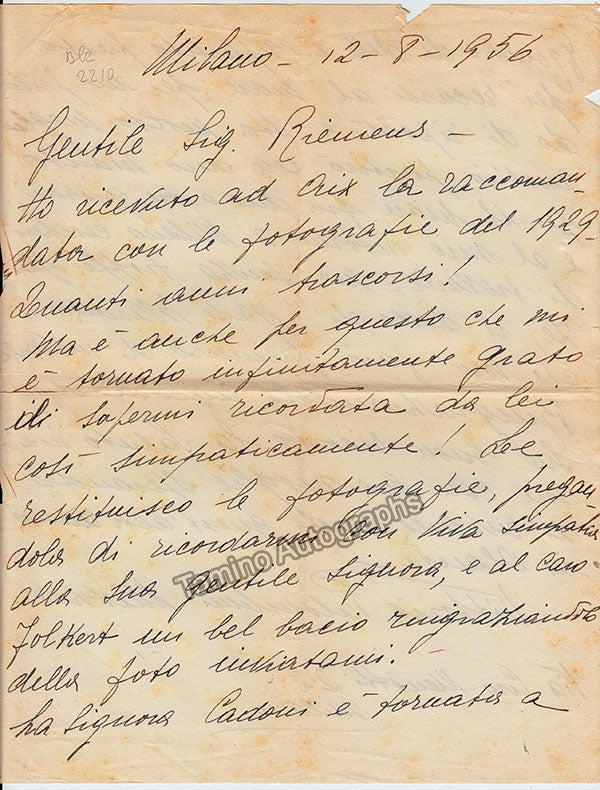 Blz
2210
Milano - 12 - 8 - 1956
Gentile Sig. Riemens -
Ho ricevuto ad Aix la raccoman
data con le fotografie del 1929.
Quanti anni trascorsi!
Ma è anche per questo che mi
è tornato infinitamente grato
di sapermi ricordata da lei
così simpaticamente! Le
restituisco le fotografie, pregan
dola di ricordarmi con viva simpatia
alla Sua gentile Signora, e al caro
Folkert un bel bacio ringraziandolo
della foto inviatami.
La Signora Cadoni è tornata a
Tamino Autographs